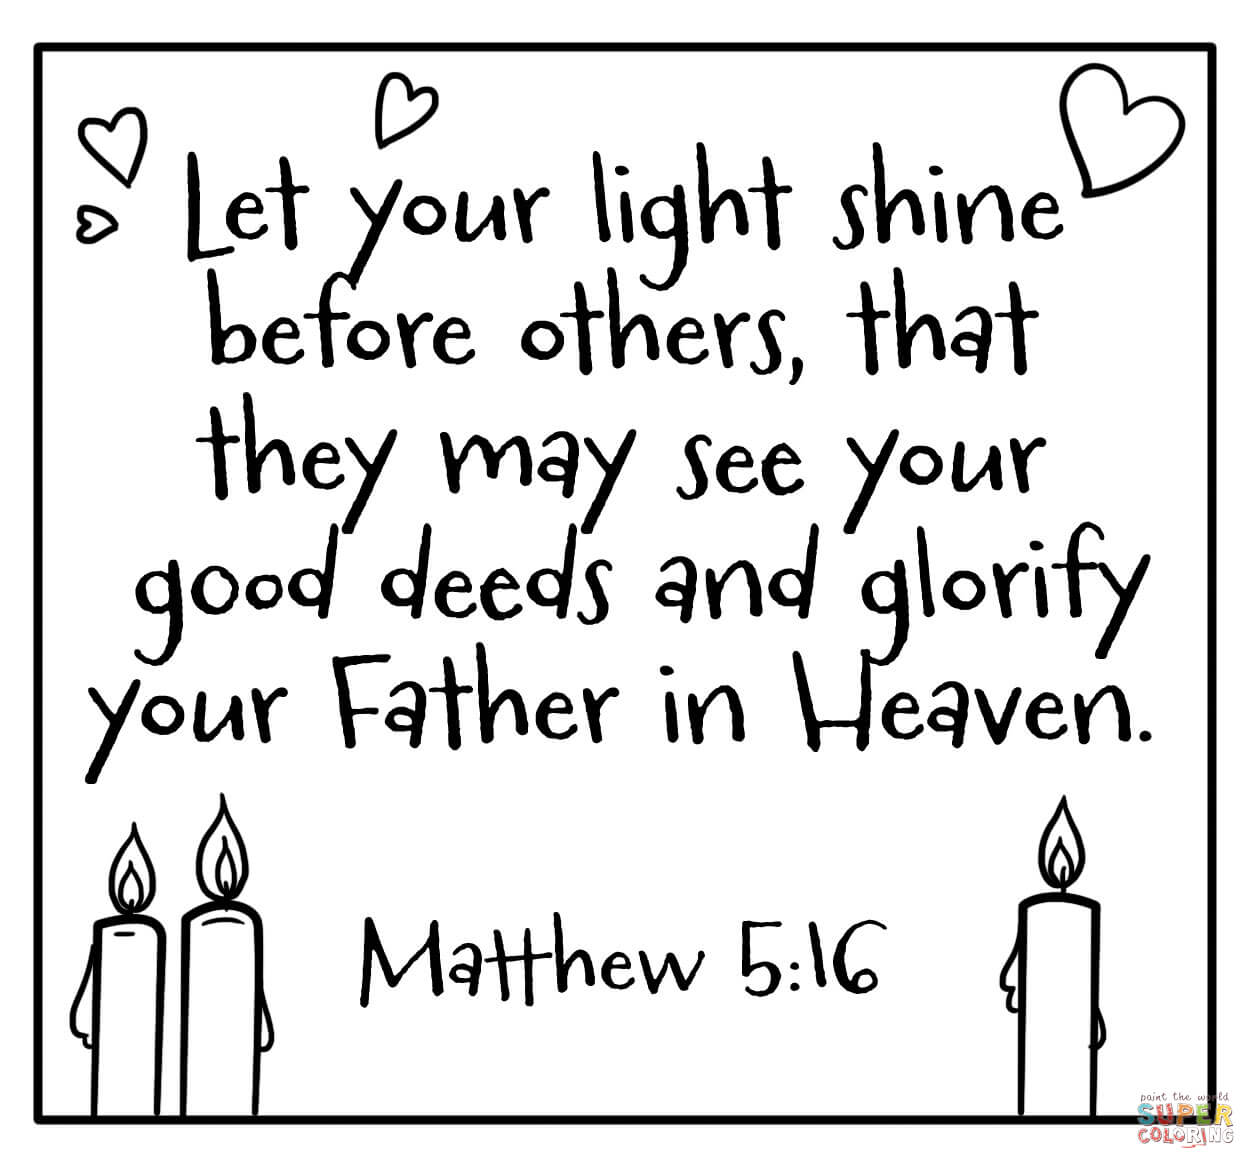 Let your light shine
before others, that
they may see your
good deeds and glorify
your Father in Heaven.
Matthew 5:16
paint the world
SUPER
COLORING